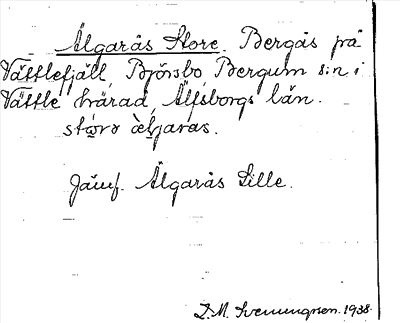 Älgarås Store. Bergås på
Vättlefjäll, Björsbo, Bergum s:n i
Vättle härad, Älfsborgs län.
Jämf. Älgarås Lille.
D. M. Svenungsen. 1938.